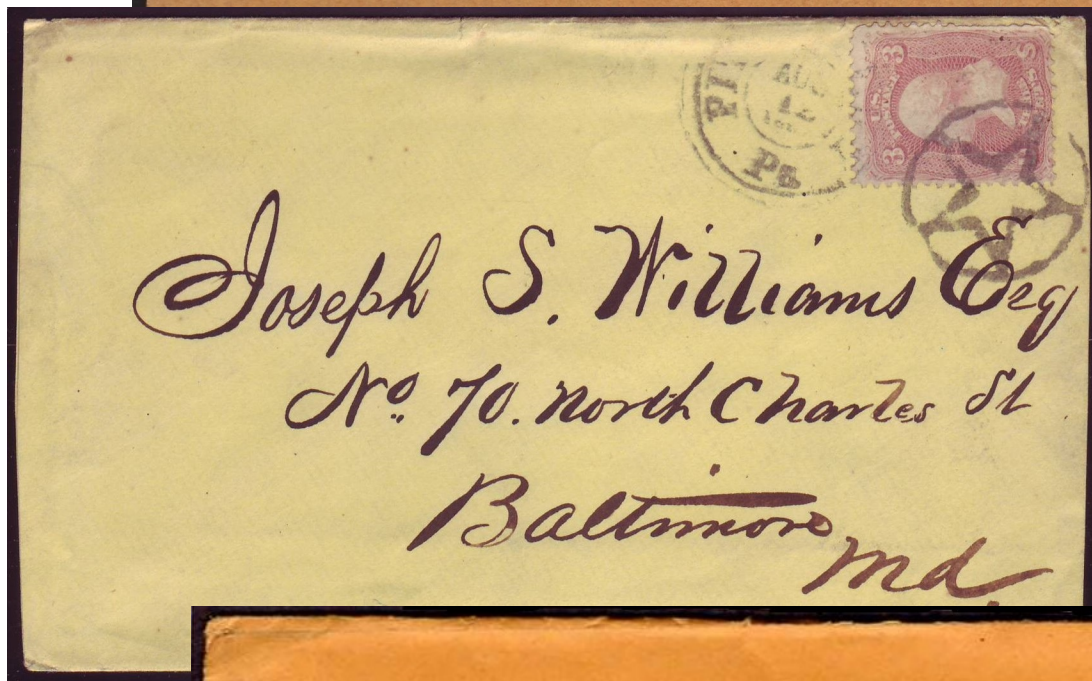 PI
AUG
12
Pa
3 3
U.S.
Joseph S. Williams Esq
No. 70. North Charles St
Baltimore
Md.